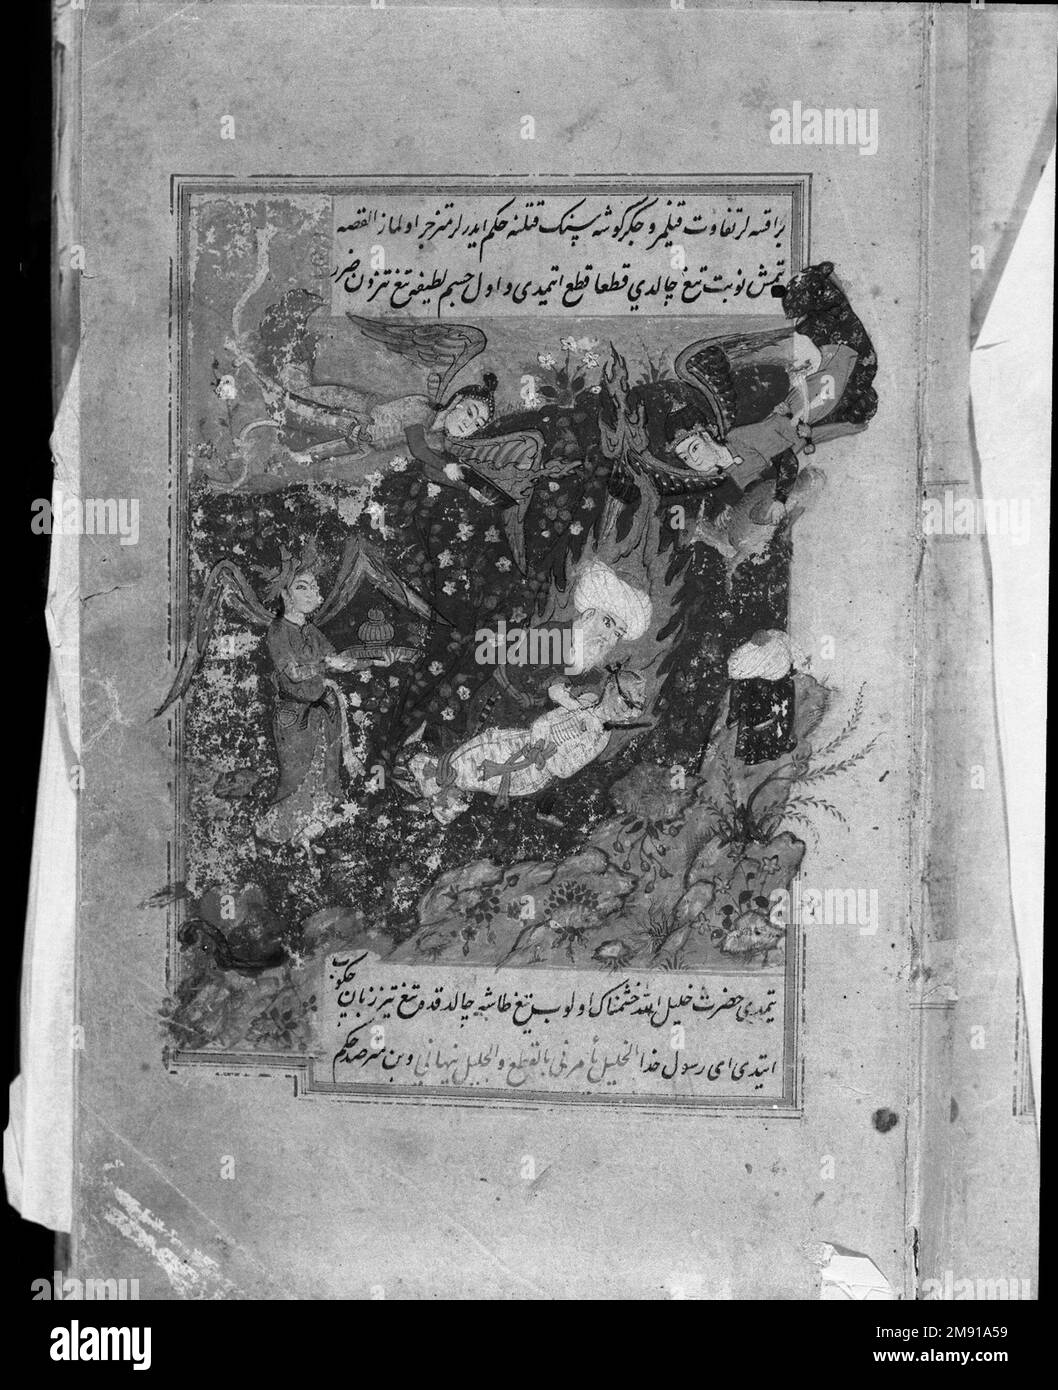 براقسه لر تفاوت قیلمز و جکر کوشه سنک قتلنه حکم ایدرلر متزجر اولماز القصه
یتمش نوبت تیغ چالدی قطعا قطع ایتمیدی و اول جسم لطیفه تیغ تیزدن ضرر
یتمدی حضرت خلیل الله خشمناک اولوب تیغ طاشه چالدقده تیغ تیز زبان
ایتدی ای رسول خدا الخلیل یأمرنی بالقطع والجلیل ینهانی و بن مترصد حکم
alamy
Image ID: 2M91A59
www.alamy.com